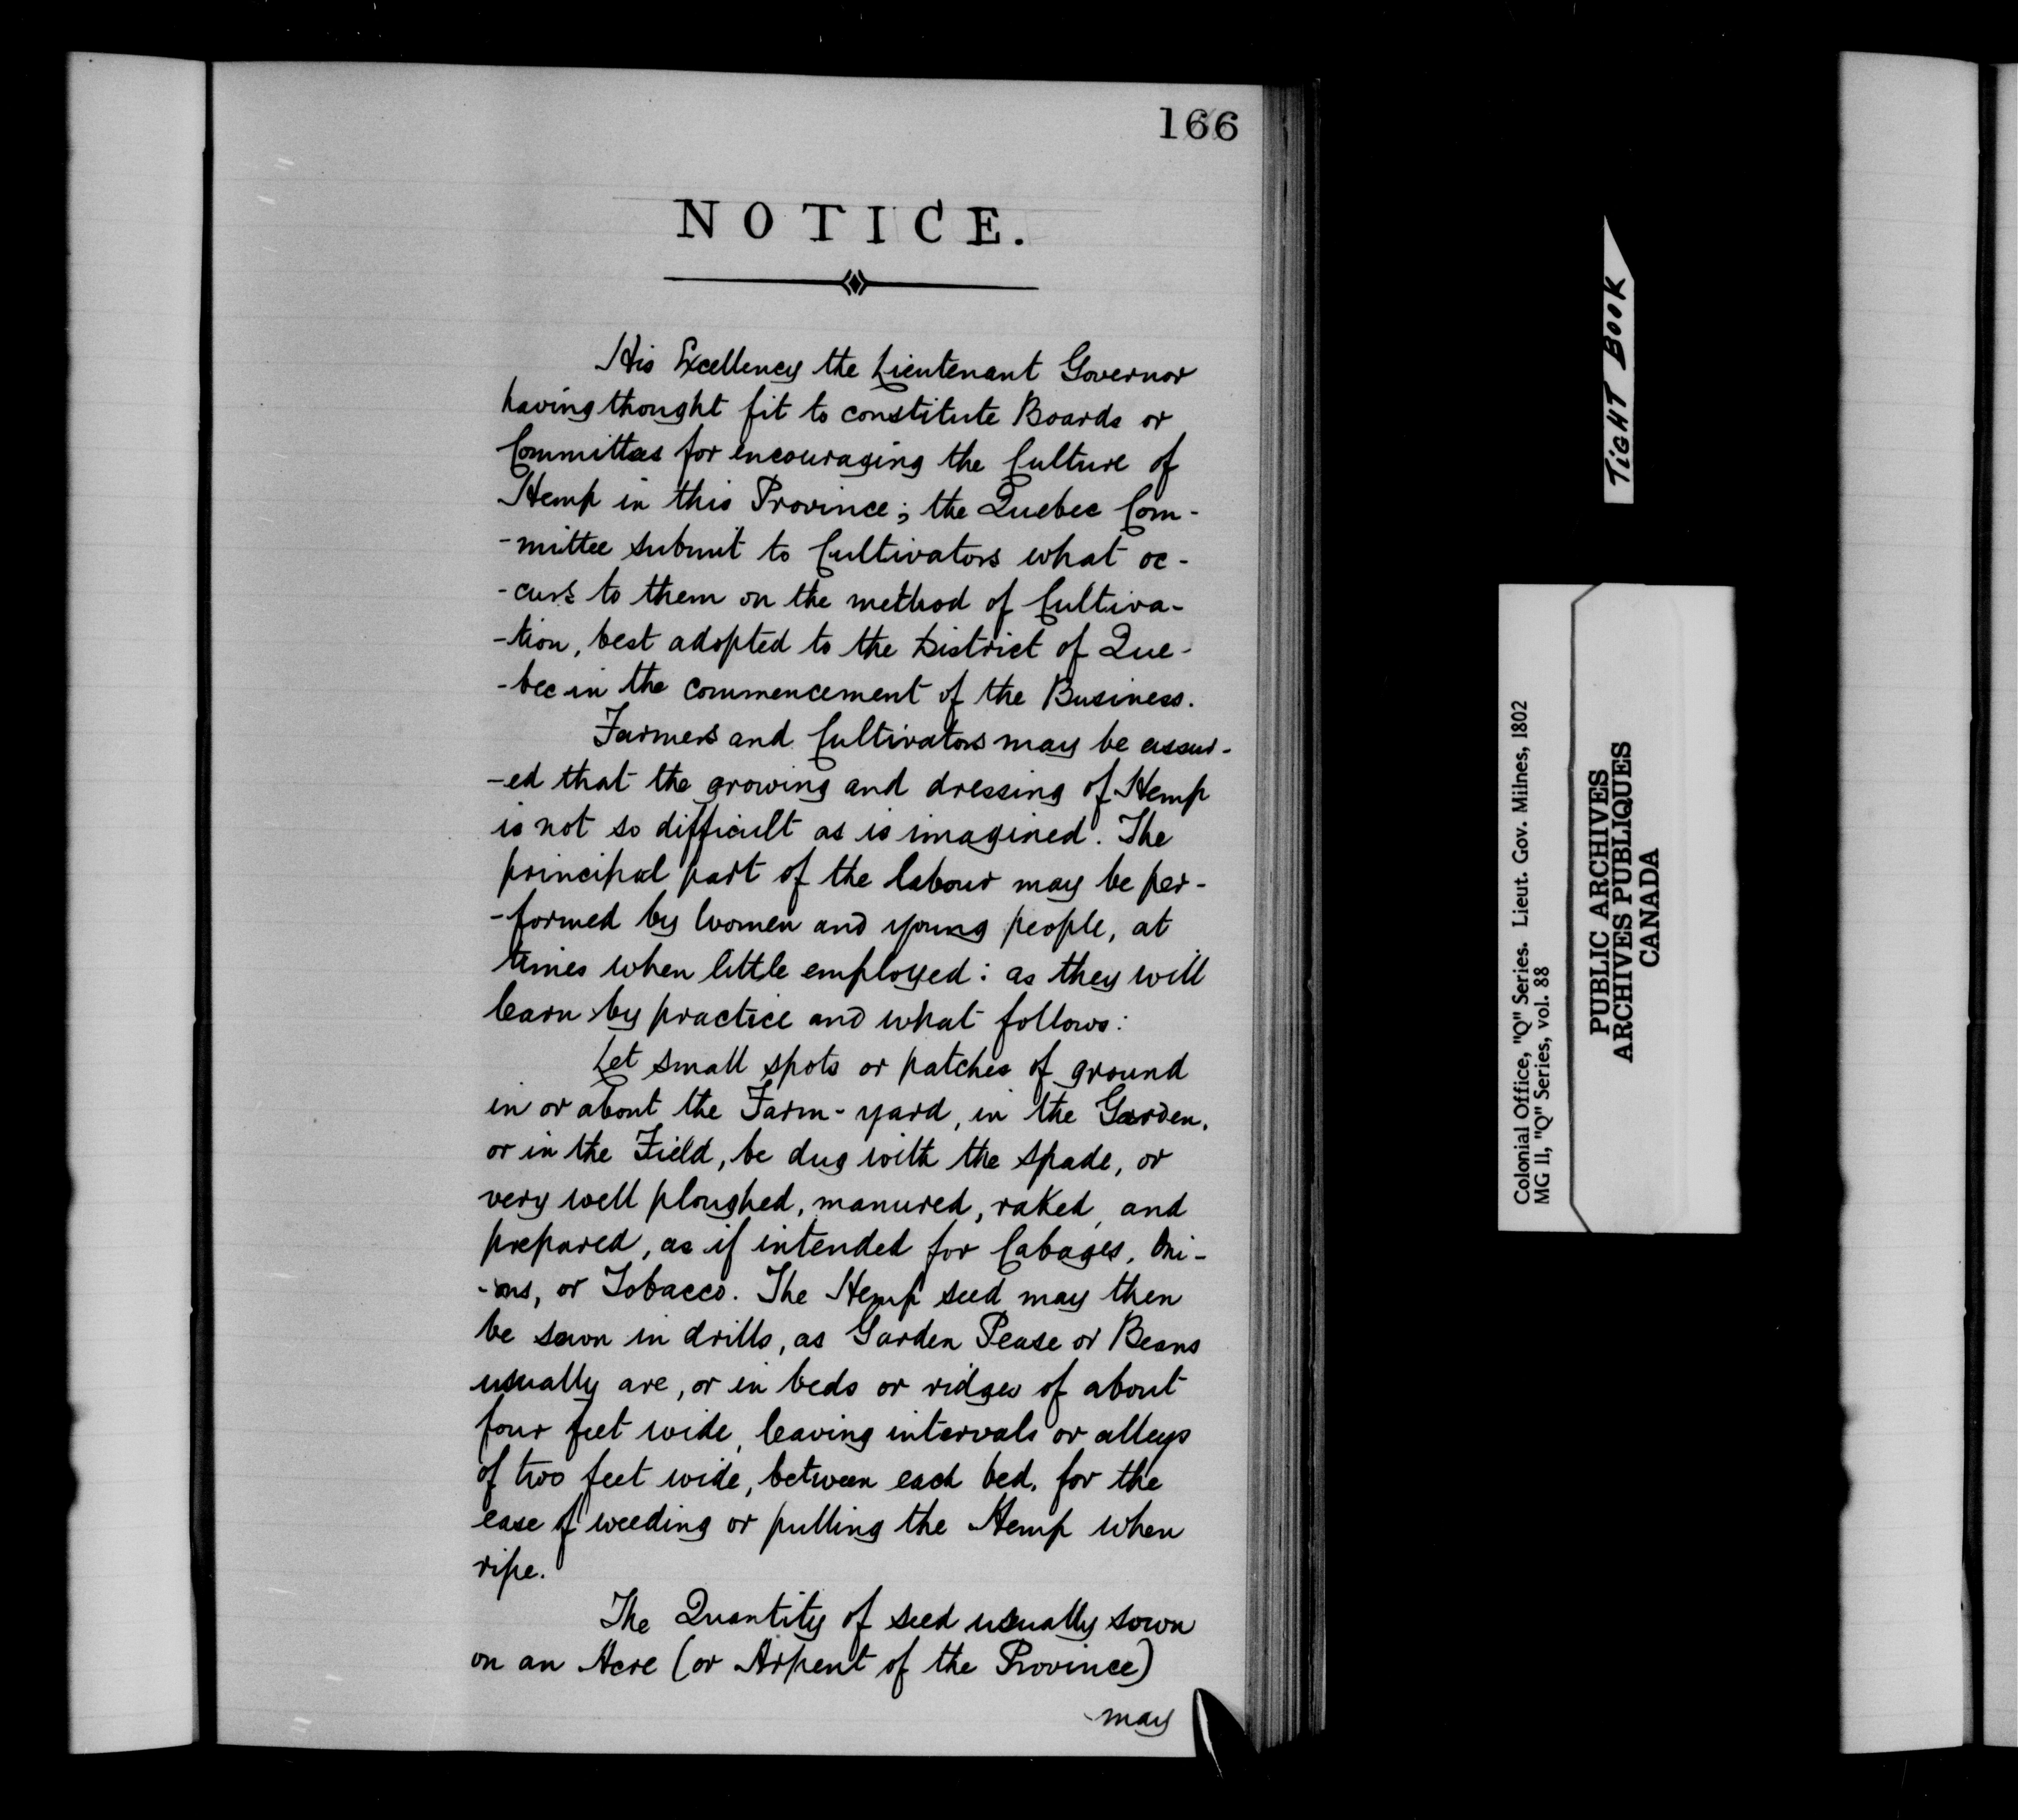 166
NOTICE.
His Excellency the Lieutenant Governor
having thought fit to constitute Boards or
Committees for encouraging the Culture of
Hemp in this Province; the Quebec Com-
-mittee submit to Cultivators what oc-
-curs to them on the method of Cultiva-
-tion, best adopted to the District of Que-
-bec in the commencement of the Business.
Farmers and Cultivators may be assur-
-ed that the growing and dressing of Hemp
is not so difficult as is imagined. The
principal part of the labour may be per-
-formed by Women and young people, at
times when little employed: as they will
learn by practice and what follows:
Let small spots or patches of ground
in or about the Farm-yard, in the Garden,
or in the Field, be dug with the spade, or
very well ploughed, manured, raked, and
prepared, as if intended for Cabages, Oni-
-ons, or Tobacco. The Hemp seed may then
be sown in drills, as Garden Pease or Beans
usually are, or in beds or ridges of about
four feet wide, leaving intervals or alleys
of two feet wide, between each bed, for the
ease of weeding or pulling the Hemp when
ripe.
The Quantity of seed usually sown
on an Acre (or Arpent of the Province)
may
TIGHT BOOK
Colonial Office, "Q" Series. Lieut. Gov. Milnes, 1802
MG 11, "Q" Series, vol. 88
PUBLIC ARCHIVES
ARCHIVES PUBLIQUES
CANADA